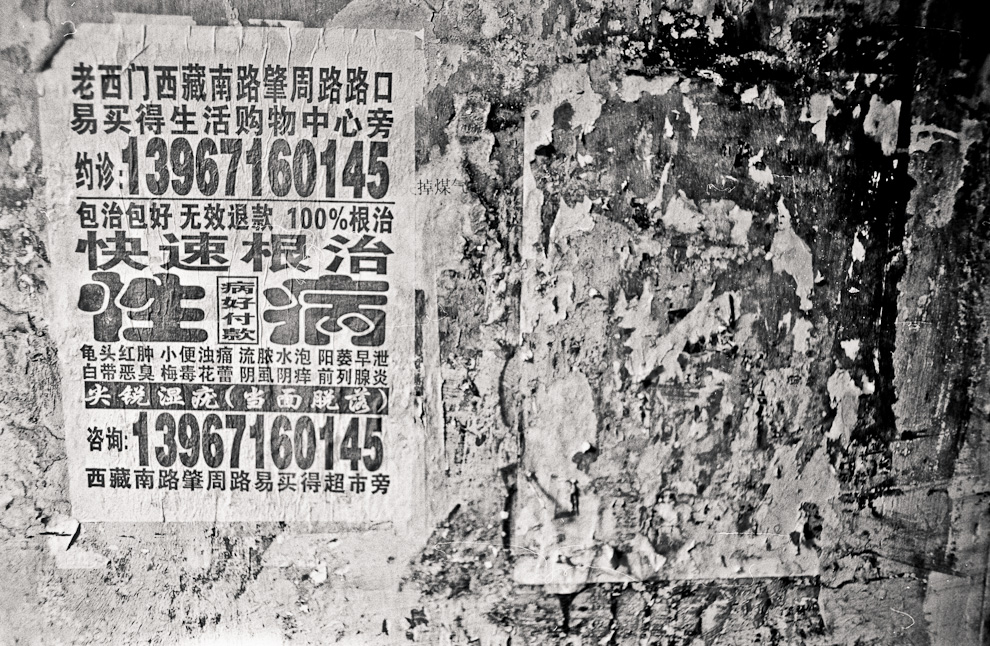 老西门西藏南路肇周路路口
易买得生活购物中心旁
约诊:13967160145
包治包好 无效退款 100%根治
快速根治
性病
病好付款
龟头红肿 小便浊痛 流脓水泡 阳萎早泄
白带恶臭 梅毒花蕾 阴虱阴痒 前列腺炎
尖锐湿疣(当面脱诊)
咨询:13967160145
西藏南路肇周路易买得超市旁
掉煤气